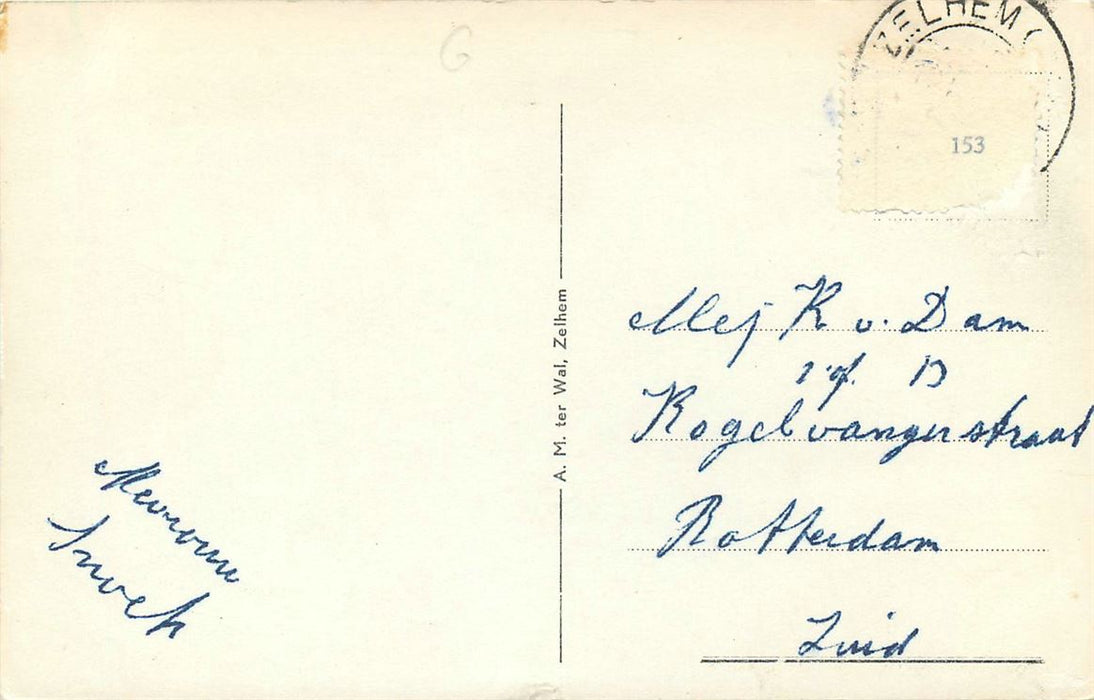 G
ZELHEM
153
A. M. ter Wal, Zelhem
Mej K v. Dam
Kogelvangerstraat
Rotterdam
Zuid
Mevrouw